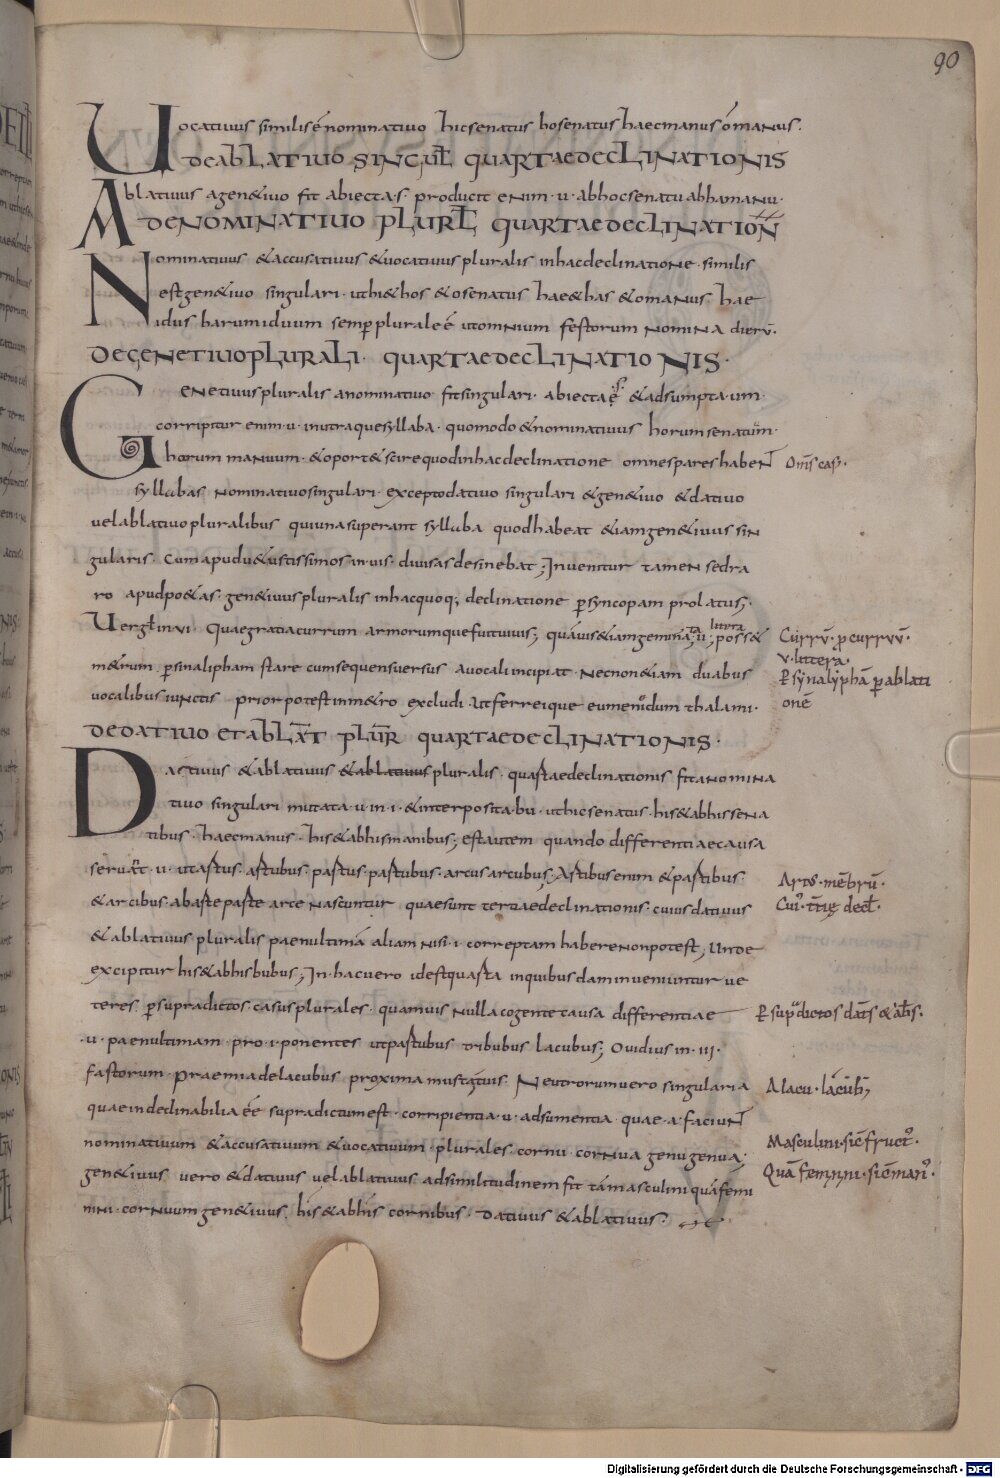 90
Uocativus similis ē nominativo hic senatus ho senatus haec manus o manus.
DE ABLATIVO SINGUL QUARTAE DECLINATIONIS
Ablativus a genetivo fit abiecta .s. producit enim .u. ab hoc senatu ab hac manu.
DE NOMINATIVO PLURL QUARTAE DECLINATION
Nominativus & accusativus & vocativus pluralis in hac declinatione similis
est gen&ivo singulari. ut hi & hos & o senatus hae & has & o manus hae
idus harum iduum semp plurale ē ut omnium festorum nomina dierū.
DE GENETIVO PLURALI. QUARTAE DECLINATIONIS.
Genetivus pluralis a nominativo fit singulari. abiecta .s. & adsumpta .um.
corripitur enim .u. in utraque syllaba. quomodo & nominativus horum senatuum.
harum manuum. & oport& scire quod in hac declinatione omnes pares habeNT
Omīs cas.
syllabas nominativo singulari. excepto dativo singulari & gen&ivo & dativo
vel ablativo pluralibus qui una superant syllaba quod habeat & iam gen&ivus sin
gularis. Cum apud v&ustissimos in .uis. divisas desinebat; Invenitur tamen sed ra
ro apud po&as. gen&ivus pluralis in hac quoq; declinatione p syncopam prolatus;
Vergl in vi Quae gratia currum armorumque fuit vivis; quāvis & iam gemina ta .u. littera poss&
Currū. p curruū.
u. littera.
m&rum p sinalipham stare cum sequens versus a vocali incipiat. Necnon & iam duabus
p synalyphā p ablati
onē
vocalibus iunctis prior potest in m&ro excludi. Ut ferreique eumenidum thalami.
DE DATIVO ET ABLAT PLUR QUARTAE DECLINATIONIS.
Dativus & ablativus & ablativus pluralis. quartae declinationis fit a nomina
tivo singulari mutata .u. in .i. & interposita .bu. ut hic senatus. his & ab his sena
tibus. haec manus. his & ab his manibus; est autem quando differentiae causa
servat .u. ut artus. artubus. partus. partubus. arcus arcubus; Artibus enim & partibus
Artos. mēbrū.
& arcibus. ab arte parte arce nascuntur quae sunt tertiae declinationis. cuius dativus
Cui' t̄tię decl.
& ablativus pluralis paenultimā aliam nisi .i. correptam habere non potest; Unde
excipitur his & ab his bubus; In hac vero id est quarta in quibusdam inveniuntur ve
teres. p supradictos casus plurales. quamvis nulla cogente causa differentiae
p sup dictos dats & abls.
.u. paenultimam. pro .i. ponentes ut partubus tribubus lacubus; Ovidius in .iii.
fastorum. Praemia de lacubus proxima musta tuis. Neutrorum vero singularia
A lacu. lacub;
quae indeclinabilia eē supradictum est. corripientia .u. adsumentia quae .a. faciuNT
nominativum & accusativum & vocativum. plurales. cornu. cornua genu genua;
Masculini. sic fruct'.
gen&ivus vero & dativus vel ablativus ad similitudinem fit tā masculini quā femi
Quā feminini. sic man'.
nini. cornuum gen&ivus. his & ab his cornibus. dativus & ablativus.
Digitalisierung gefördert durch die Deutsche Forschungsgemeinschaft - DFG